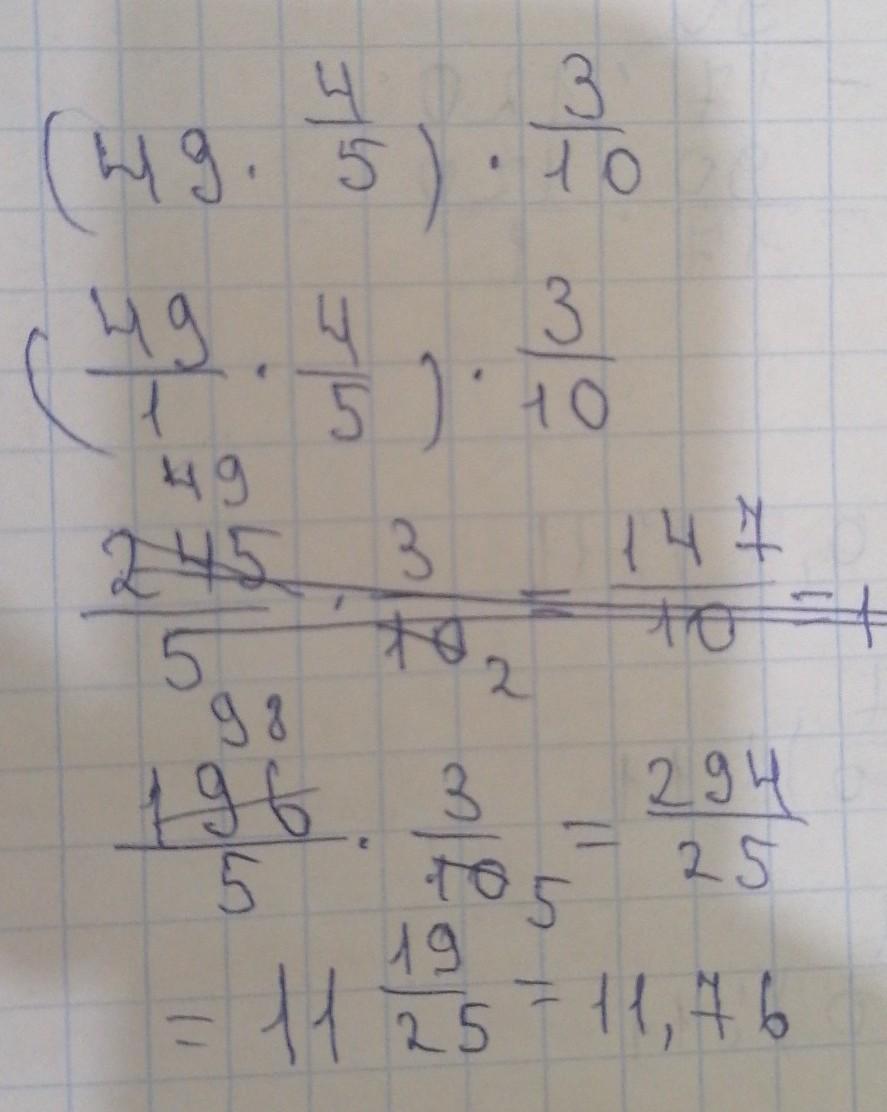 (49 · 4/5) · 3/10
(49/1 · 4/5) · 3/10
49
245/5 · 3/10 = 147/10 = 1
2
98
196/5 · 3/10 = 294/25
5
= 11 19/25 = 11,76